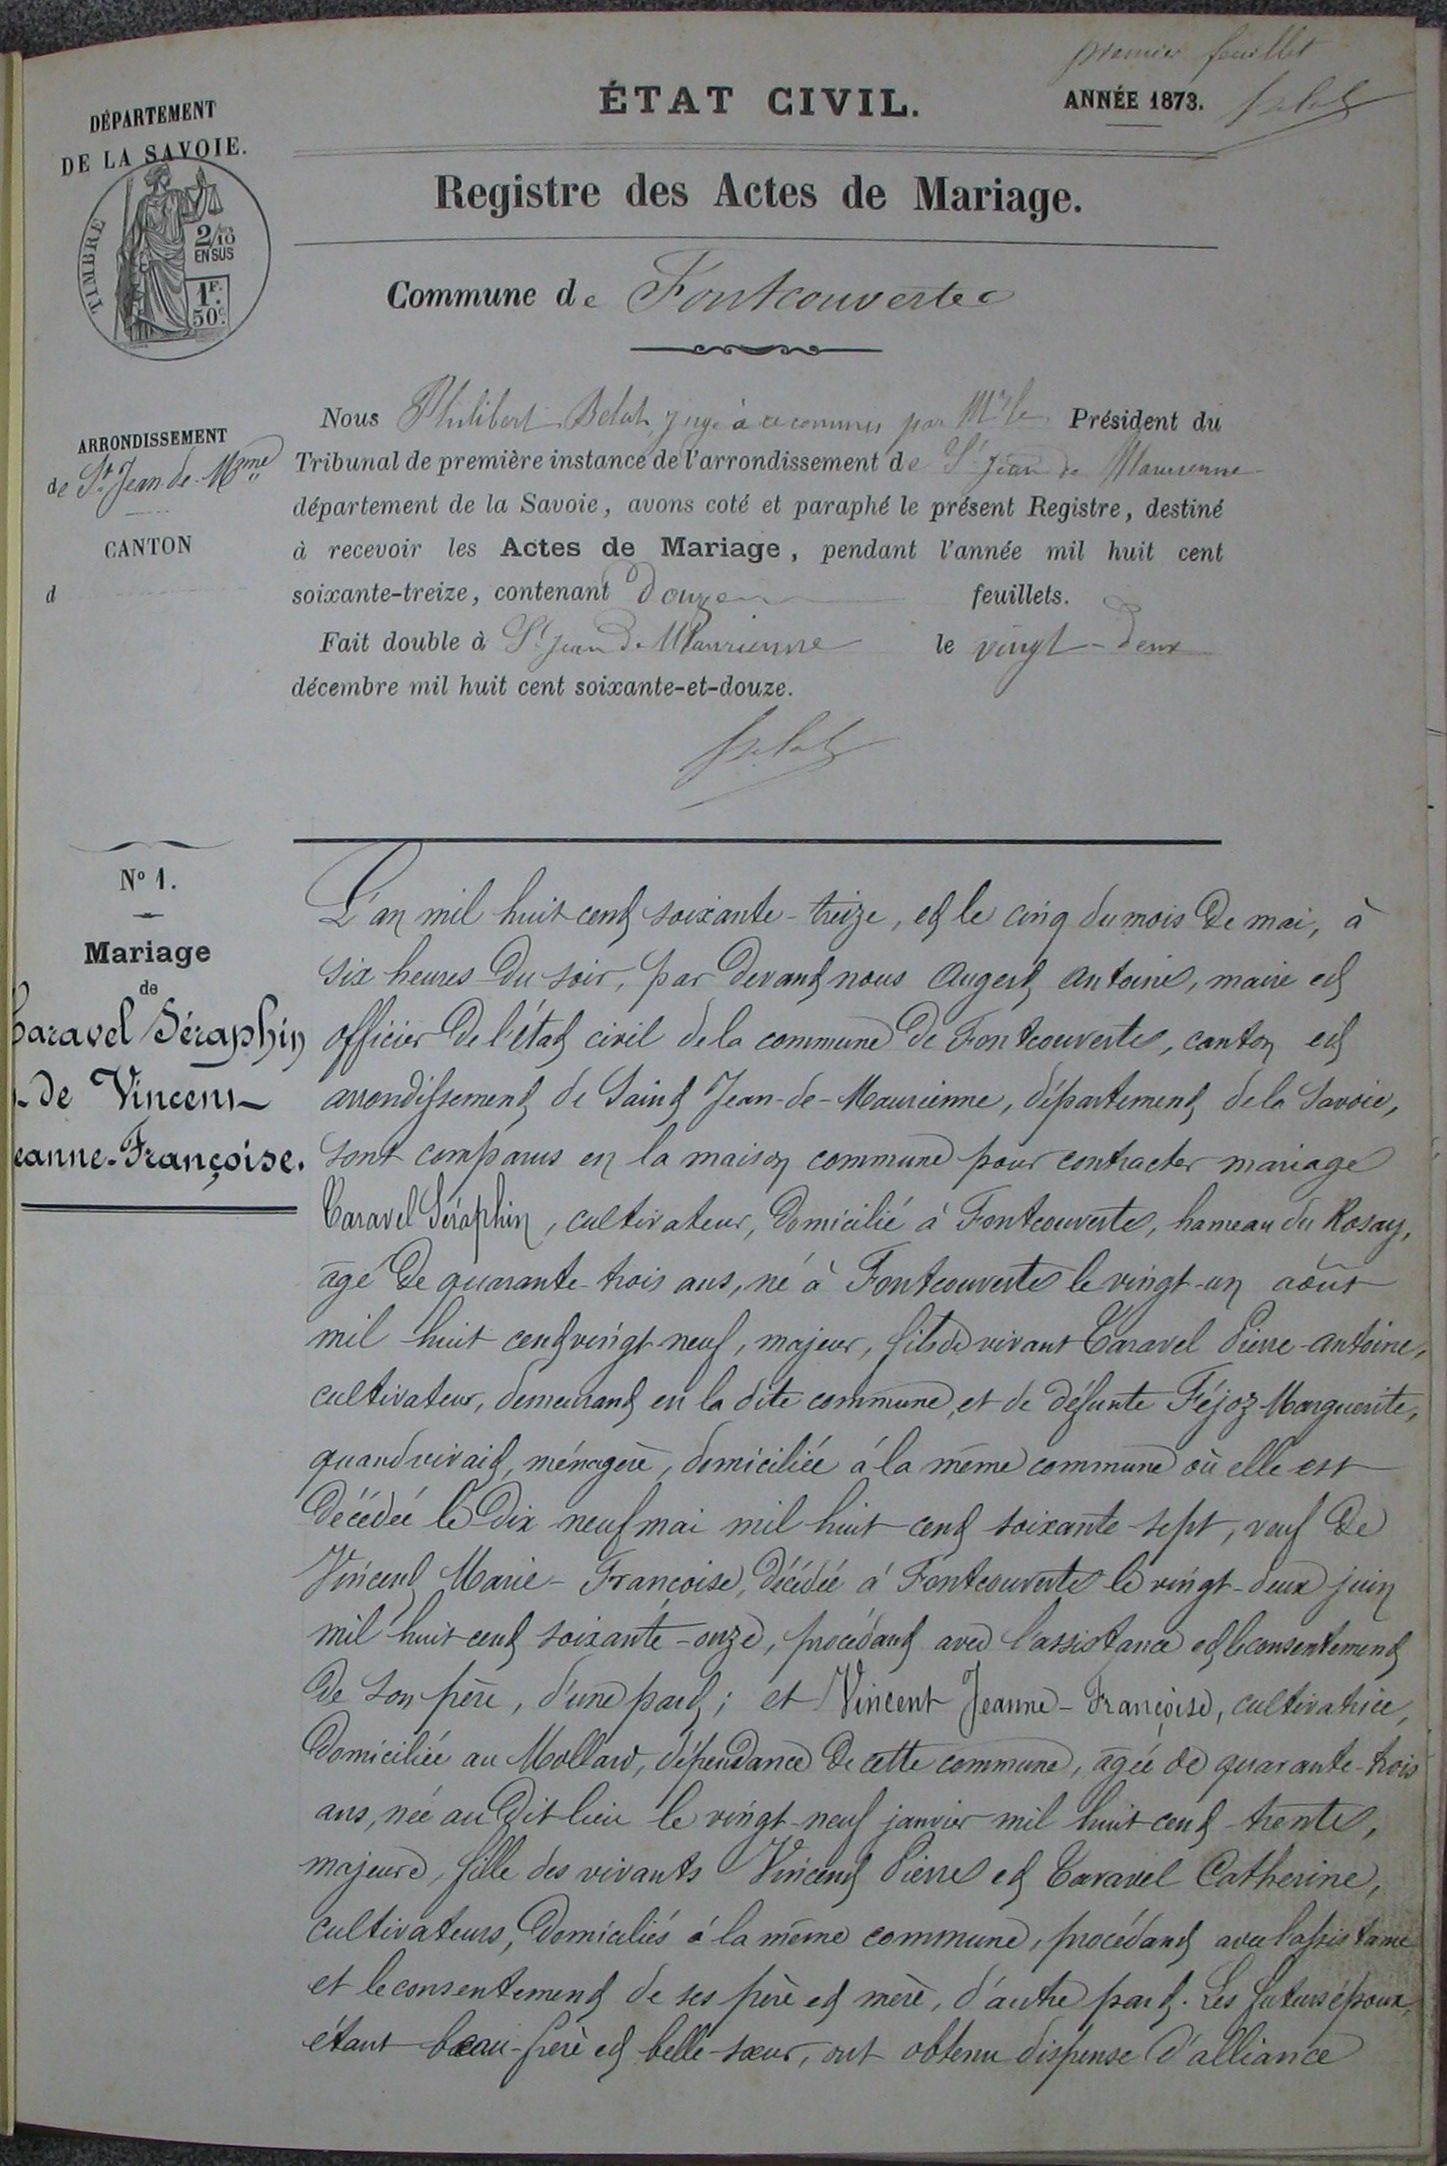 premier feuillet
ÉTAT CIVIL.
ANNÉE 1873.
DÉPARTEMENT
DE LA SAVOIE.
TIMBRE
2/10
EN SUS
1F.
50c.
Registre des Actes de Mariage.
Commune de Fontcouverte
ARRONDISSEMENT
de St Jean-de-Mme
CANTON
d
Nous Philibert Belat, Juge à ce commis par Mr le Président du
Tribunal de première instance de l'arrondissement de St Jean de Maurienne
département de la Savoie, avons coté et paraphé le présent Registre, destiné
à recevoir les Actes de Mariage, pendant l'année mil huit cent
soixante-treize, contenant Douze feuillets.
Fait double à St Jean de Maurienne le vingt-deux
décembre mil huit cent soixante-et-douze.
Belat
No 1.
Mariage
de
Caravel Séraphin
de Vincent
eanne-Françoise.
L'an mil huit cent soixante-treize, et le cinq du mois de mai, à
six heures du soir, par devant nous Augert Antoine, maire et
officier de l'état civil de la commune de Fontcouverte, canton et
arrondissement de Saint Jean-de-Maurienne, département de la Savoie,
sont comparus en la maison commune pour contracter mariage
Caravel Séraphin, cultivateur, domicilié à Fontcouverte, hameau du Rosay,
âgé de quarante-trois ans, né à Fontcouverte le vingt-un août
mil huit cent vingt-neuf, majeur, fils de vivant Caravel Pierre-Antoine,
cultivateur, demeurant en la dite commune, et de défunte Féjoz Marguerite,
quand vivait, ménagère, domiciliée à la même commune où elle est
décédée le dix neuf mai mil huit cent soixante-sept, veuf de
Vincent Marie-Françoise, décédée à Fontcouverte le vingt-deux juin
mil huit cent soixante-onze, procédant avec l'assistance et le consentement
de son père, d'une part; et Vincent Jeanne-Françoise, cultivatrice,
domiciliée au Mollard, dépendance de cette commune, âgée de quarante-trois
ans, née au dit lieu le vingt-neuf janvier mil huit cent trente,
majeure, fille des vivants Vincent Pierre et Caravel Catherine,
cultivateurs, domiciliés à la même commune, procédant avec l'assistance
et le consentement de ses père et mère, d'autre part. Les futurs époux,
étant beau-frère et belle-sœur, ont obtenu dispense d'alliance